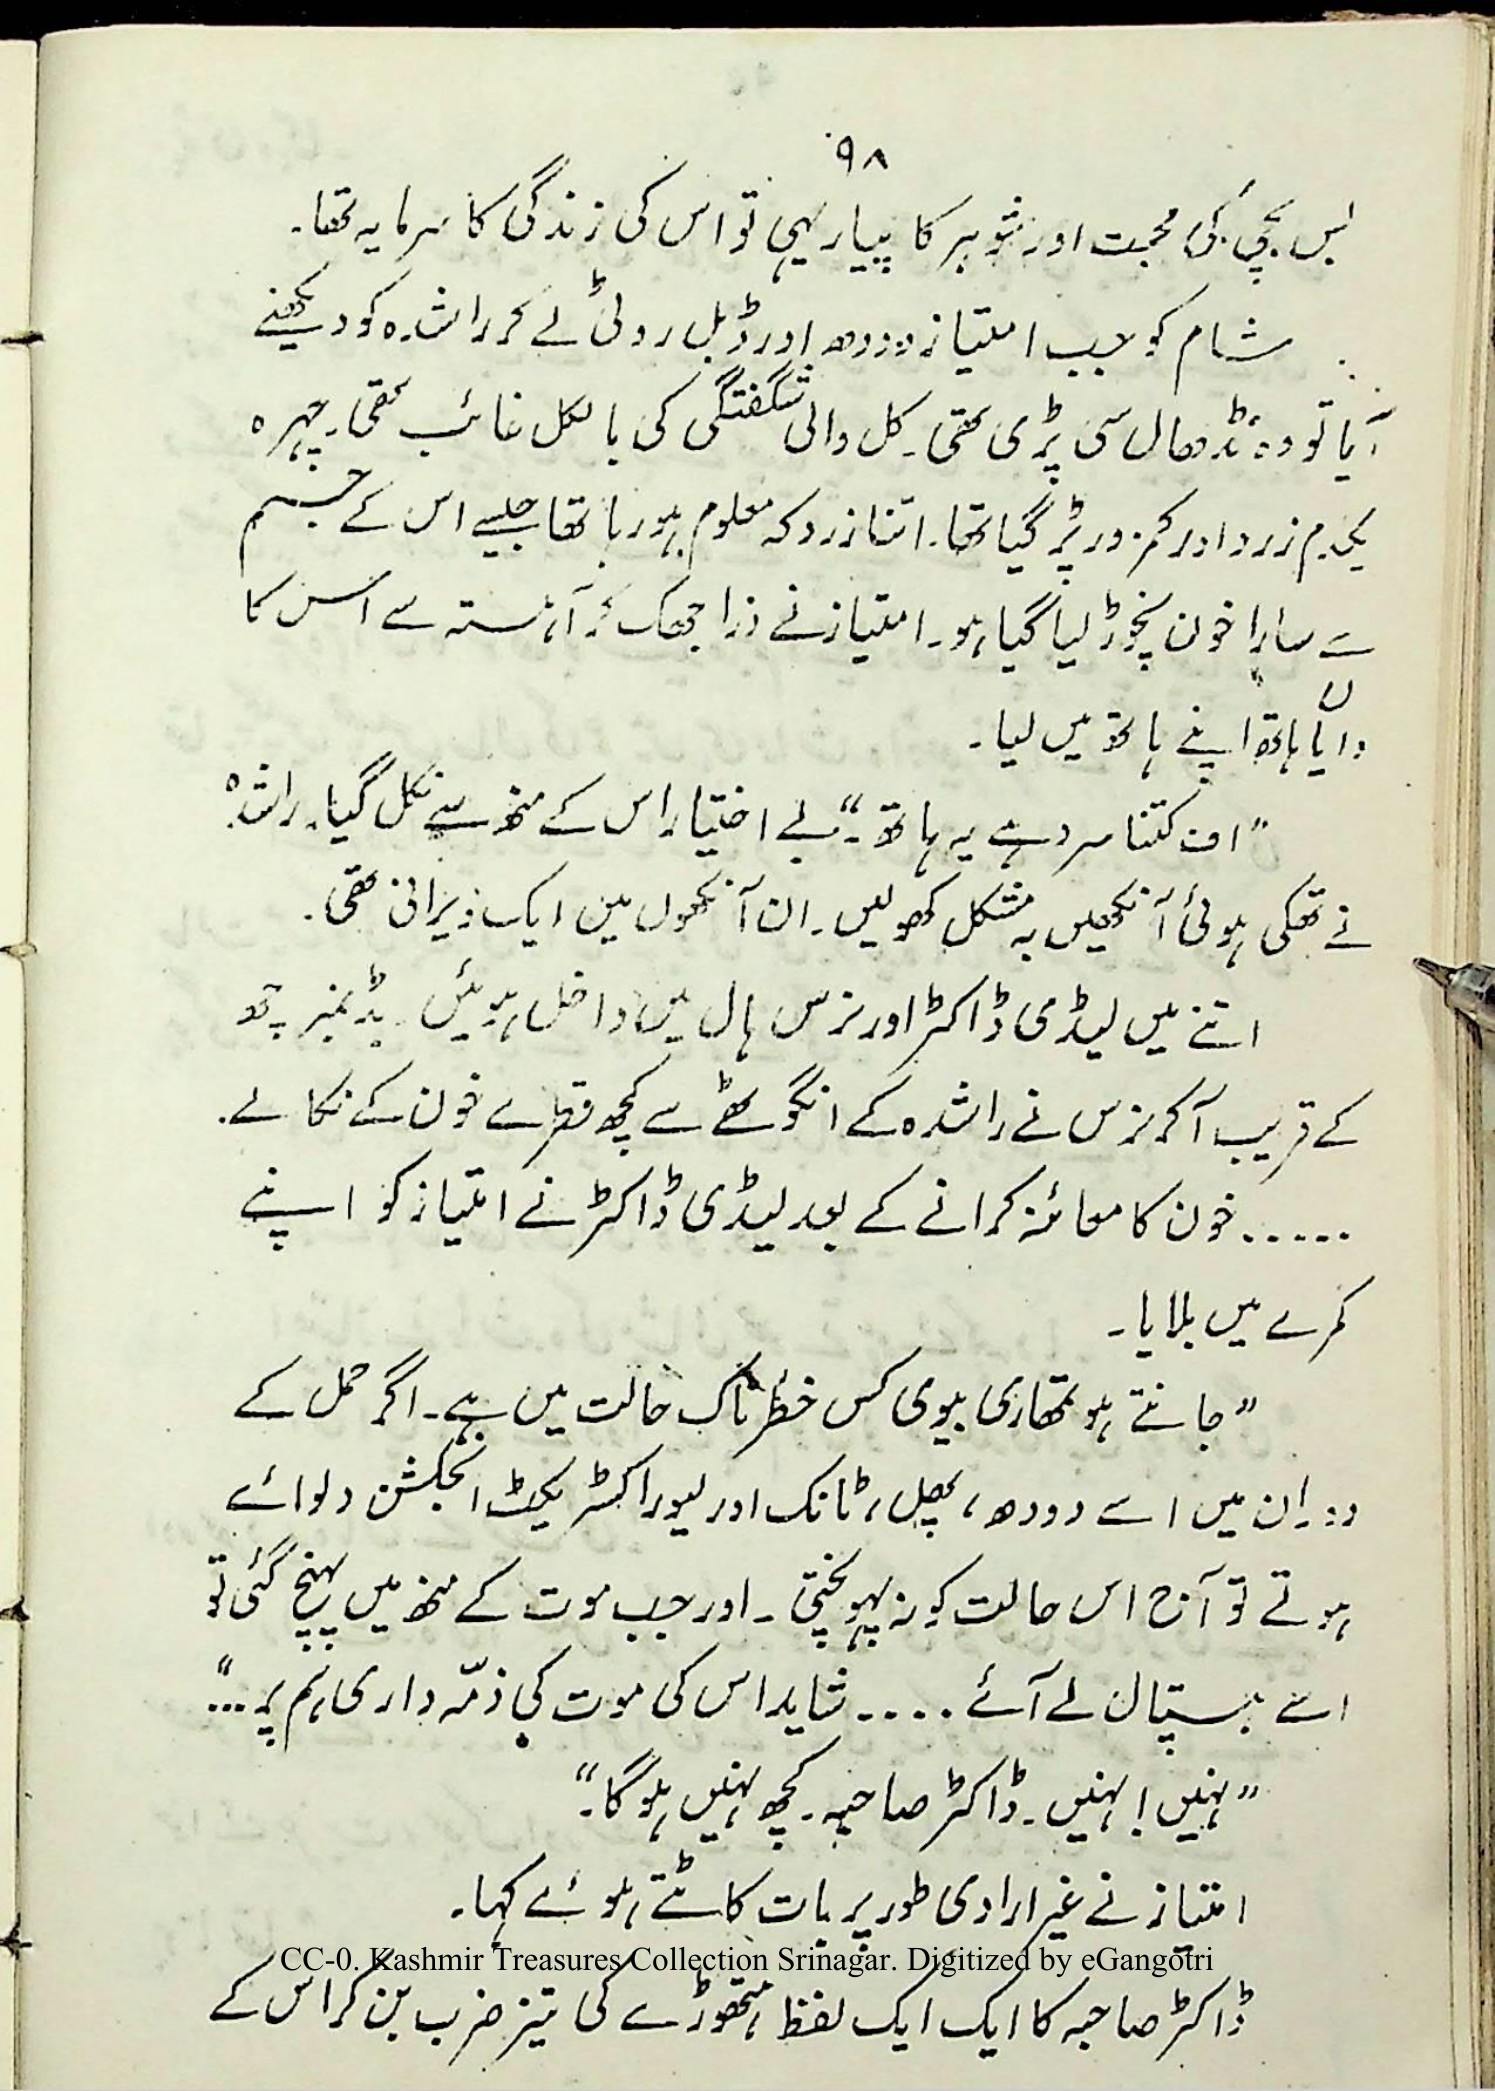 ۹۸
بس بچی کی محبت اور شوہر کا پیار ہی تو اس کی زندگی کا سرمایہ تھا۔
شام کو جب امتیاز دودھ اور ڈبل روٹی لے کر راشدہ کو دیکھنے
آیا تو وہ نڈھال سی پڑی تھی۔ کل والی شگفتگی کی بالکل غائب تھی۔ چہرہ
یکدم زرد اور کمزور پڑ گیا تھا۔ اتنا زرد کہ معلوم ہو رہا تھا جیسے اس کے جسم
سے سارا خون نچوڑ لیا گیا ہو۔ امتیاز نے ذرا جھک کر آہستہ سے اس کا
دایاں ہاتھ اپنے ہاتھ میں لیا۔
"اف کتنا سرد ہے یہ ہاتھ۔" بے اختیار اس کے منھ سے نکل گیا۔ راشدہ
نے تھکی ہوئی آنکھیں بہ مشکل کھولیں۔ ان آنکھوں میں ایک ویرانی تھی۔
اتنے میں لیڈی ڈاکٹر اور نرس ہال میں داخل ہوئیں۔ بڈ نمبر چھ
کے قریب آ کر نرس نے راشدہ کے انگوٹھے سے کچھ قطرے خون کے نکالے۔
..... خون کا معائنہ کرانے کے بعد لیڈی ڈاکٹر نے امتیاز کو اپنے
کمرے میں بلایا۔
"جانتے ہو تمھاری بیوی کس خطرناک حالت میں ہے۔ اگر حمل کے
دوران میں اسے دودھ، پھل، ٹانک اور لیور اکسٹریکٹ انجکشن دلوائے
ہوتے تو آج اس حالت کو نہ پہونچتی۔ اور جب موت کے منھ میں پہنچ گئی تو
اسے ہسپتال لے آئے .... شاید اس کی موت کی ذمّہ داری ہم پر ..."
"نہیں! نہیں۔ ڈاکٹر صاحبہ۔ کچھ نہیں ہوگا۔"
امتیاز نے غیر ارادی طور پر بات کاٹتے ہوئے کہا۔
CC-0. Kashmir Treasures Collection Srinagar. Digitized by eGangotri
ڈاکٹر صاحبہ کا ایک ایک لفظ ہتھوڑے کی تیز ضرب بن کر اس کے